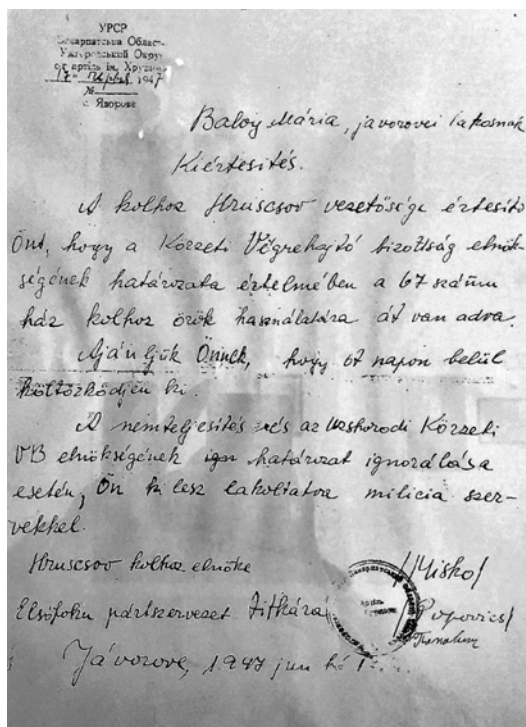 УРСР
Закарпатська Область
Ужгородський Округ
с/г артіль ім. Хрущова
17" червня 1947
№
с. Яворове
Baloy Mária, javorovei lakosnak
Kiértesités.
A kolhoz Hruscsov vezetősége értesíto
Önt, hogy a Körzeti Végrehajtó bizottság elnök-
ségének határozata értelmében a 67 számu
ház kolhoz örök használatára át van adva.
Ajánljuk Önnek, hogy öt napon belül
költözködjén ki.
A nemteljesités és az Uzshorodi Körzeti
VB elnökségének határozat ignorálása
esetén, Ön ki lesz lakoltatva milicia szer-
vekkel.
Hruscsov kolhoz elnöke /Misko/
Elsőfoku pártszervezet Titkára /Popovics/
Jávorove, 1947 jun hó 1